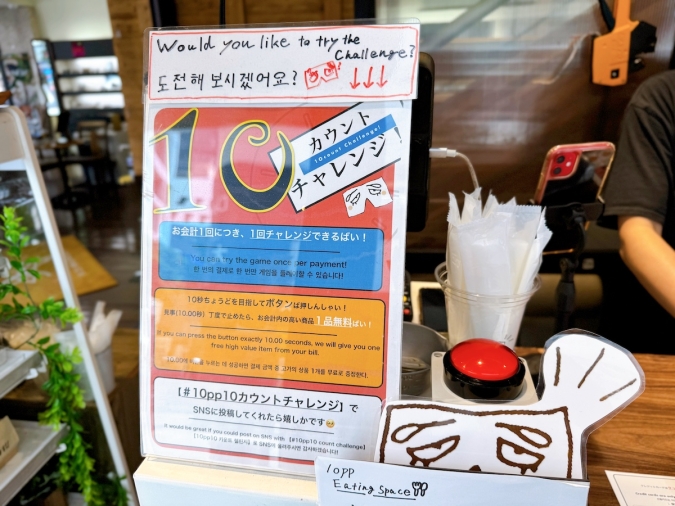 Would you like to try the Challenge?
도전해 보시겠어요?
10
カウント
10×count Challenge!
チャレンジ
お会計1回につき、1回チャレンジできるばい！
You can try the game once per payment!
한 번의 결제로 한 번만 게임을 플레이할 수 있습니다!
10秒ちょうどを目指してボタンば押しんしゃい！
見事(10.00秒)丁度で止めたら、お会計内の高い商品1品無料ばい！
If you can press the button exactly 10.00 seconds, we will give you one
free high value item from your bill.
누르는 데 성공하면 결제 금액 중 고가의 상품 1개를 무료로 증정한다.
【＃10pp10カウントチャレンジ】で
SNSに投稿してくれたら嬉しかです
It would be great if you could post on SNS with 【#10pp10 count challenge】
【10pp10 카운트 챌린지】로 SNS에 올려주시면 감사하겠습니다
10pp
Eating Space